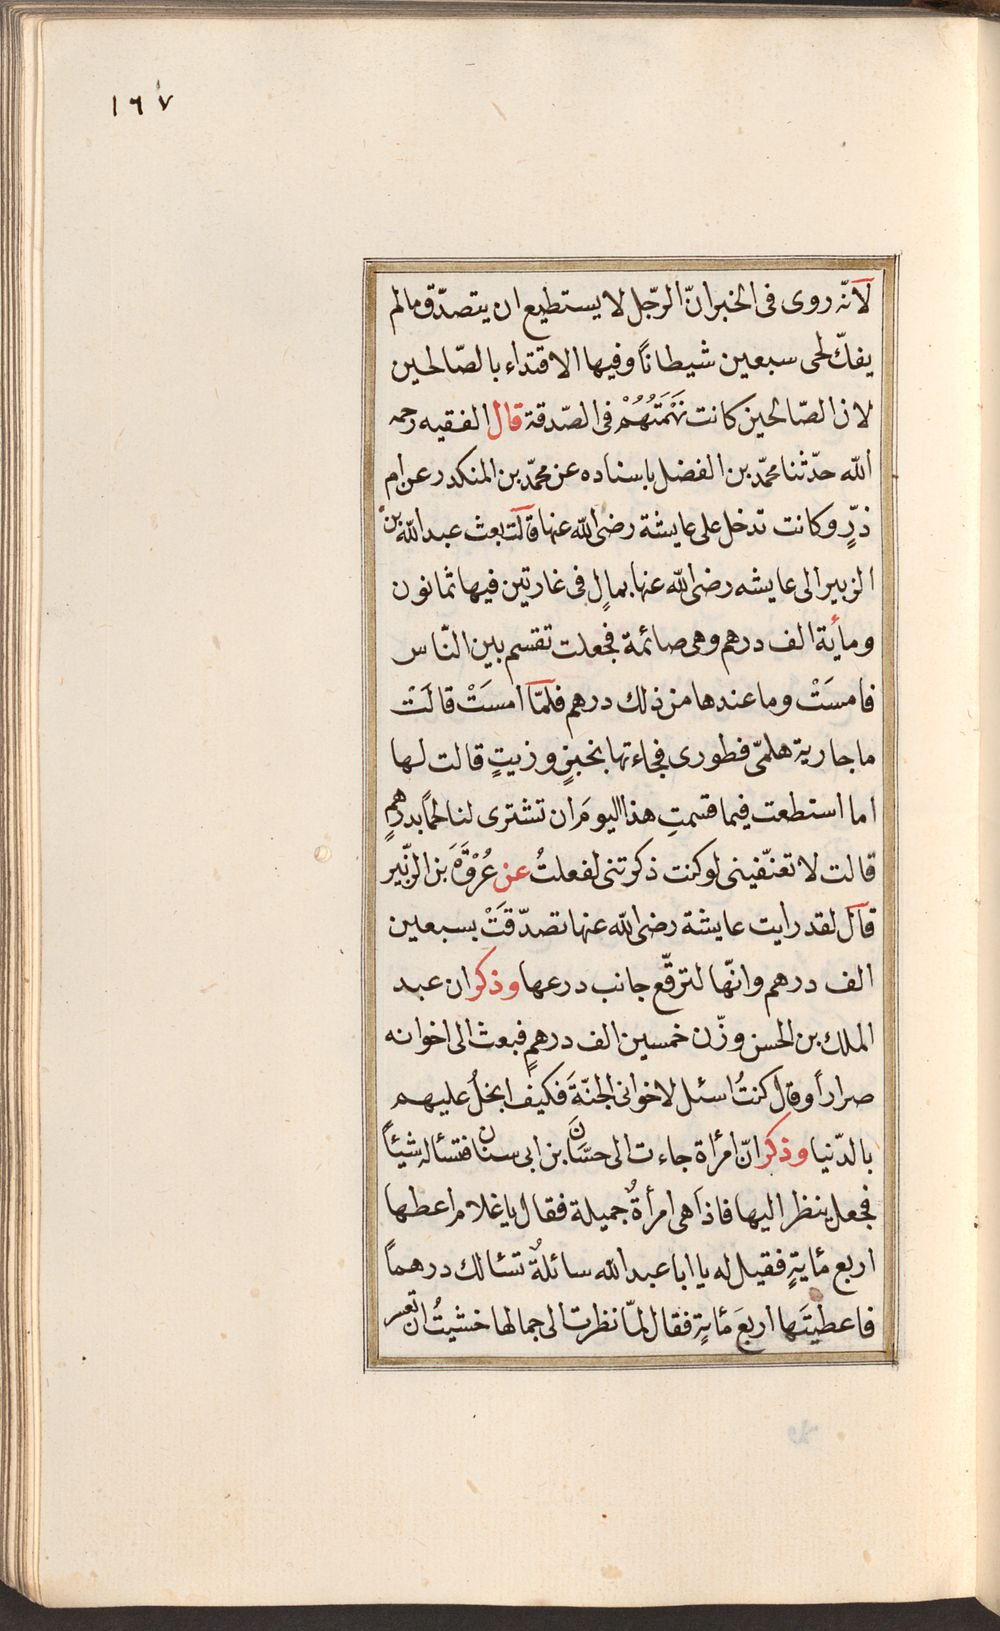 ١٦٧
لانّه روى فى الخبر انّ الرّجل لا يستطيع ان يتصدّق مالم
يفكّ لحى سبعين شيطاناً وفيها الاقتداء بالصّالحين
لان الصّالحين كانت نَهْمَتُهُمْ فى الصّدقة قال الفقيه رحمه
الله حدّثنا محمّد بن الفضل باسناده عن محمّد بن المنكدر عن ام
ذرٍّ وكانت تدخل على عايشة رضى الله عنها قالت بعث عبد الله بن
الزبير الى عايشه رضى الله عنها بمالٍ فى غارتين فيها ثمانون
ومأية الف درهم وهى صائمة فجعلت تقسم بين النّاس
فامسَتْ وما عندها من ذلك درهم فلمّا امسَتْ قالَتْ
ما جارية هلمّى فطورى فجاءتها بخبزٍ وزيتٍ قالت لها
اما استطعت فيما قسمتِ هذا اليومَ ان تشترى لنا لحماً بدرهمٍ
قالت لا تعنّفينى لو كنت ذكرتنى لفعلتُ عن عُرْوَةَ بن الزّبير
قال لقد رايت عايشة رضى الله عنها تصدّقَتْ بسبعين
الف درهم وانّها لترقّع جانب درعها وذكر ان عبد
الملك بن الحسن وزّن خمسين الف درهمٍ فبعث الى اخوانه
صراراً وقال كنتُ اسئل لاخوانى الجنّةَ فكيف ابخلُ عليهم
بالدّنيا وذكر انّ امرأة جاءت الى حسّان بن ابى سنان فتسأله شيئاً
فجعل ينظر اليها فاذا هى امرأةٌ جميلة فقال يا غلام اعطها
اربع مأيةٍ فقيل له يا ابا عبد الله سائلةٌ تسٔالك درهماً
فاعطيتَها اربعَ مأيةٍ فقال لمّا نظرت الى جمالها خشيتُ ان